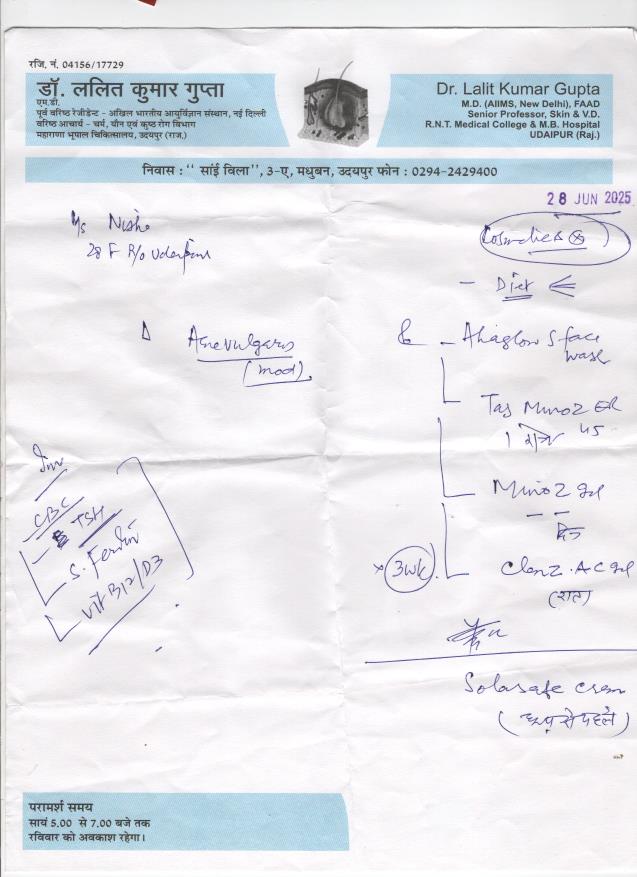 रजि. नं. 04156/17729
डॉ. ललित कुमार गुप्ता
एम.डी.
पूर्व वरिष्ठ रेजीडेन्ट - अखिल भारतीय आयुर्विज्ञान संस्थान, नई दिल्ली
वरिष्ठ आचार्य - चर्म, यौन एवं कुष्ठ रोग विभाग
महाराणा भूपाल चिकित्सालय, उदयपुर (राज.)
Dr. Lalit Kumar Gupta
M.D. (AIIMS, New Delhi), FAAD
Senior Professor, Skin & V.D.
R.N.T. Medical College & M.B. Hospital
UDAIPUR (Raj.)
निवास : '' सांई विला'', 3-ए, मधुबन, उदयपुर फोन : 0294-2429400
28 JUN 2025
Nisha
28 F R/o Udaipur
Cosmetics
- Diet
Acne vulgaris
(mod)
- Ahaglow S face
wash
Tab Mino2 ER
45
Mino2 gel
Clenz. AC gel
(रात)
3wk
Inv
CBC
TSH
S. Ferritin
Vit B12/D3
Solasafe cream
(धूप से पहले)
परामर्श समय
सायं 5.00 से 7.00 बजे तक
रविवार को अवकाश रहेगा।